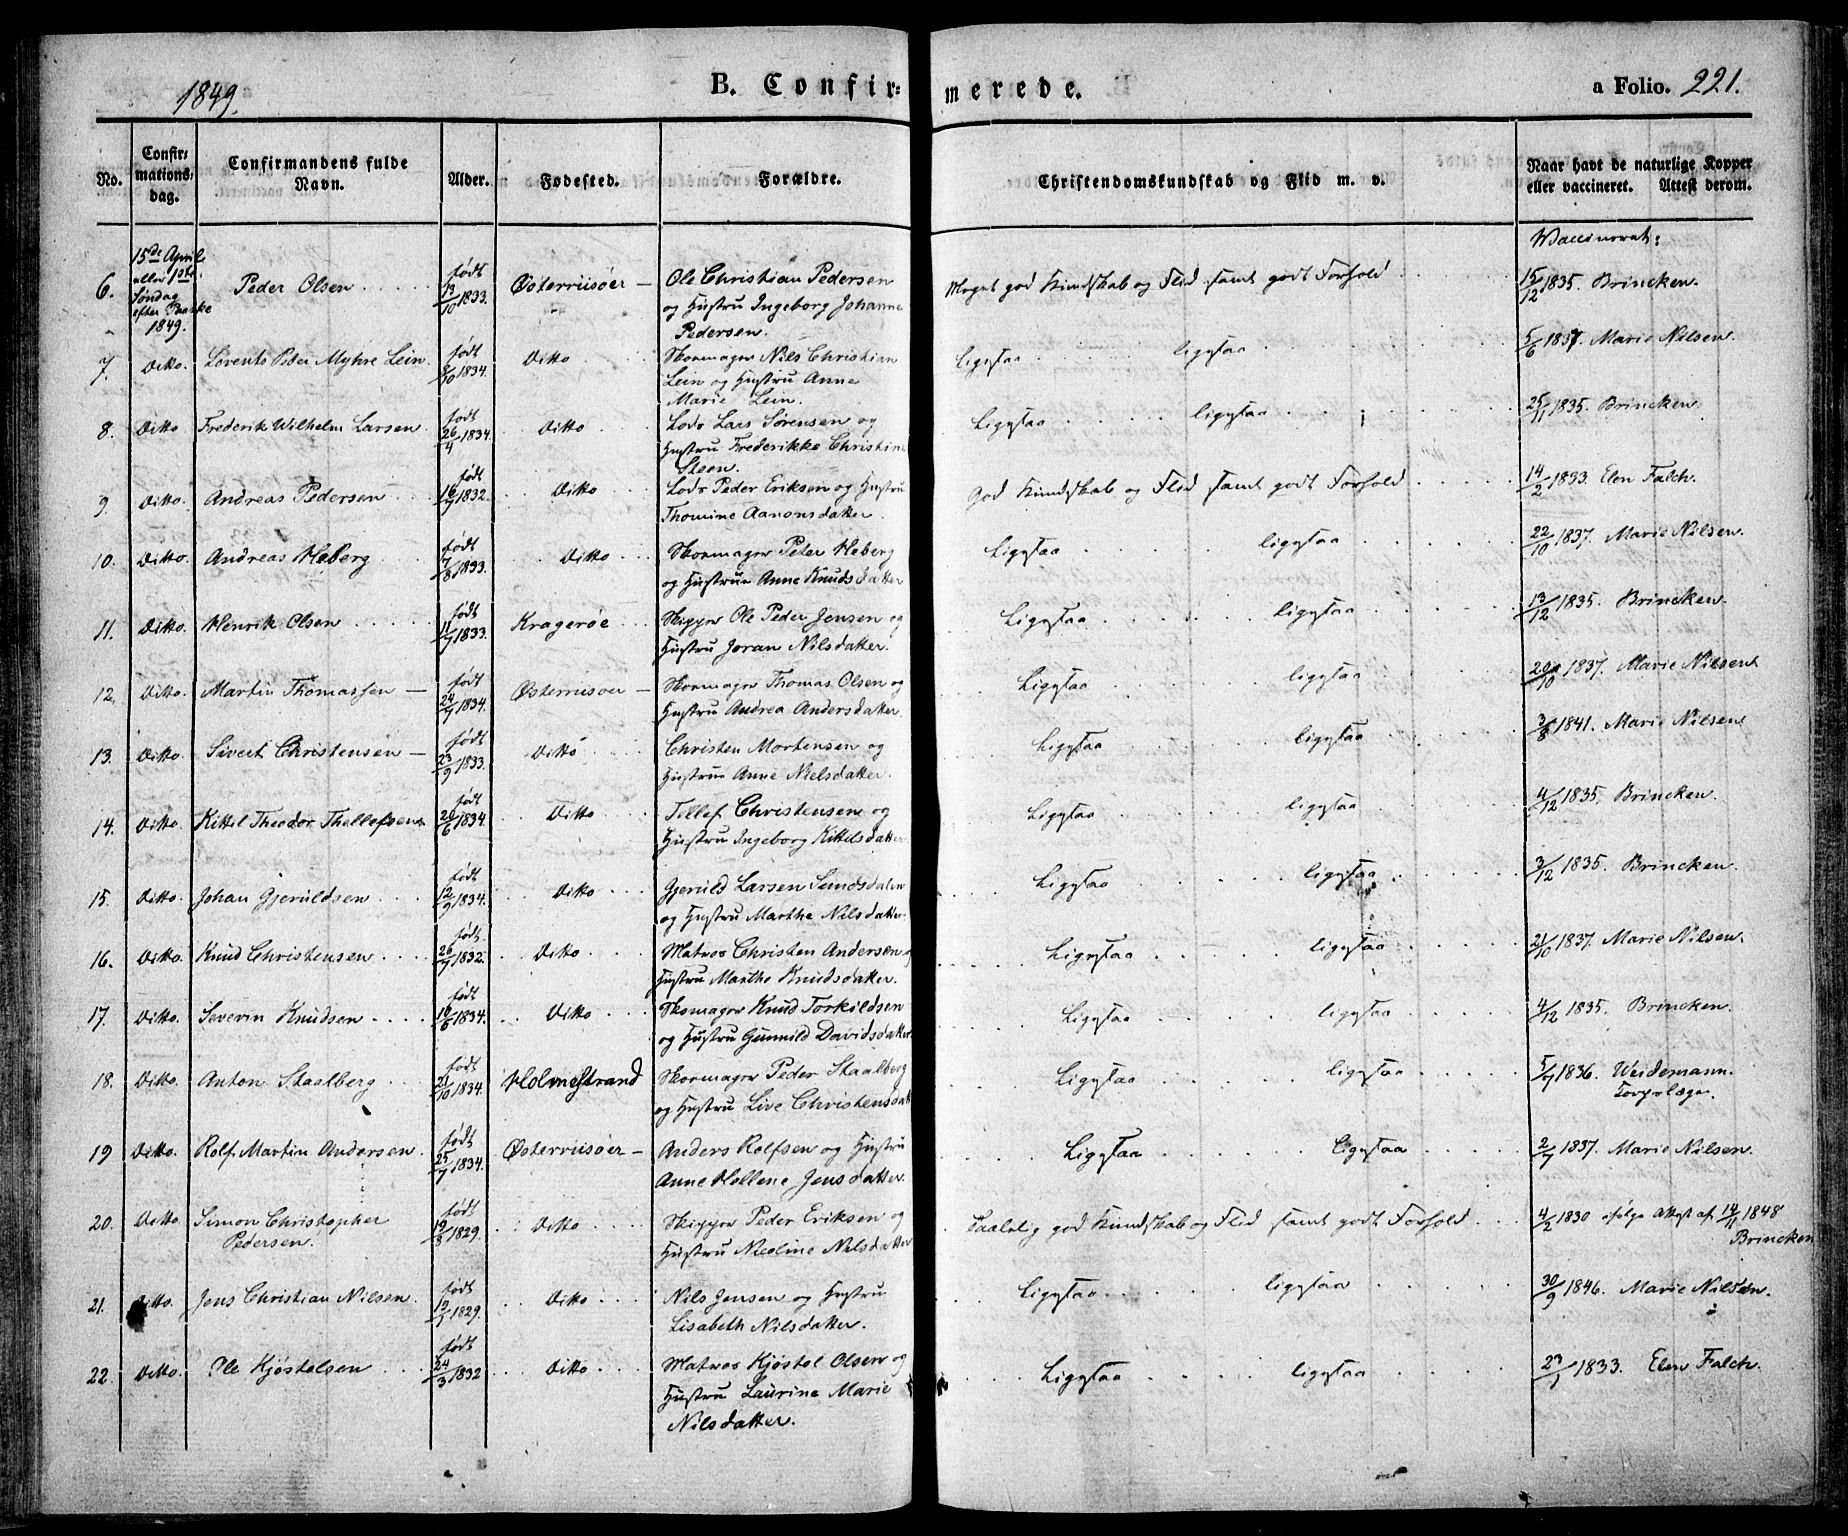 1849.
B. Confir=
merede.
a Folio. 221.
No.
Confir=
mations=
dag.
Confirmandens fulde
Navn.
Alder.
Fødested.
Forældre.
Christendomskundskab og Flid m. v.
Naar havt de naturlige Kopper
eller vaccineret. Attest derom.
Vaccinerat:
6. 15de April eller 1ste Søndag efter Paaske 1849. Peder Olsen født 13/10 1833. Østerriisöer Ole Christian Pedersen Meget god Kundskab og Flid samt godt Forhold 15/12 1835. Brincken.
og Hustru Ingeborg Johanne
Pedersen.
7. Ditto. Lovents Peter Myhre Lein. født 8/10 1834. Ditto Skomager Nils Christian Ligesaa ligesaa 5/6 1837. Marie Nilsen.
Lein og Hustru Anne
Marie Lein.
8. Ditto Frederik Wilhelm Larsen født 26/4 1834. Ditto Lods Lars Sørensen og Ligesaa ligesaa 25/11 1835. Brincken
Hustru Frederikke Christine
Steen.
9. Ditto. Andreas Pedersen født 16/9 1832. Ditto Lods Peder Eriksen og Hustru God Kundskab og Flid samt godt Forhold 14/2 1833. Elen Falch.
Thomine Aanonsdatter.
10. Ditto. Andreas Heberg født 7/8 1833. Ditto Skomager Peter Heberg Ligesaa ligesaa 22/10 1837. Marie Nilsen.
og Hustrue Anne Knudsdatter
11. Ditto. Henrik Olsen født 11/7 1833. Kragerøe Skipper Ole Peder Jensen og Ligesaa ligesaa 13/12 1835. Brincken.
Hustru Joran Nilsdatter.
12. Ditto. Martin Thomassen født 24/9 1834. Østerriisöer Skomager Thomas Olsen og Ligesaa ligesaa 20/10 1837. Marie Nilsen
Hustru Andrea Andersdatter.
13. Ditto. Sivert Christensen født 23/9 1833. Ditto Christen Mortensen og Ligesaa ligesaa 3/8 1841. Marie Nilsen
Hustrue Anne Nielsdatter.
14. Ditto. Kittil Theodor Thellefsen født 20/6 1834. Ditto Tellef Christensen og Ligesaa ligesaa 4/12 1835. Brincken.
Hustru Ingeborg Kittelsdatter
15. Ditto. Johan Gjeruldsen født 12/9 1834. Ditto Gjeruld Larsen Sundsdalen Ligesaa ligesaa 3/12 1835. Brincken.
og Hustru Marthe Nilsdatter.
16. Ditto. Knud Christensen født 26/7 1832. Ditto Matros Christen Andersen og Ligesaa ligesaa 21/10 1837. Marie Nilsen.
Hustru Marthe Knudsdatter.
17. Ditto. Severin Knudsen født 16/6 1834. Ditto Skomager Knud Torkildsen Ligesaa ligesaa 4/12 1835. Brincken.
og Hustru Gunnild Davidsdatter
18. Ditto. Anton Staalberg født 21/10 1834. Holmestrand Skomager Peder Staalberg Ligesaa ligesaa 5/7 1836. Weidemann.
og Hustru Live Christensdatt Corpslæge.
19 Ditto. Rolf Martin Andersen. født 25/7 1834. Østerriisöer Anders Rolfsen og Hustru Ligesaa ligesaa 2/7 1837. Marie Nilsen.
Anne Hellene Jensdatter.
20. Ditto. Simon Christopher født 19/8 1829. Ditto Skipper Peder Eriksen og Taalelig god Kundskab og Flid samt godt Forhold 4/2 1830 ifølge Attest af 14/11 1848
Pedersen. Hustru Nicoline Nilsdatter Brincken
21. Ditto. Jens Christian Nilsen. født 1829. Ditto Nils Jensen og Hustru Ligesaa ligesaa 30/9 1846. Marie Nilsen.
Lisabeth Nilsdatter.
22. Ditto. Ole Kjøstelsen født 24/3 1832 Ditto Matros Kjøstel Olsen og Ligesaa ligesaa 23/1 1833. Elen Falch.
Hustru Laurine Marie
Nilsdatter.